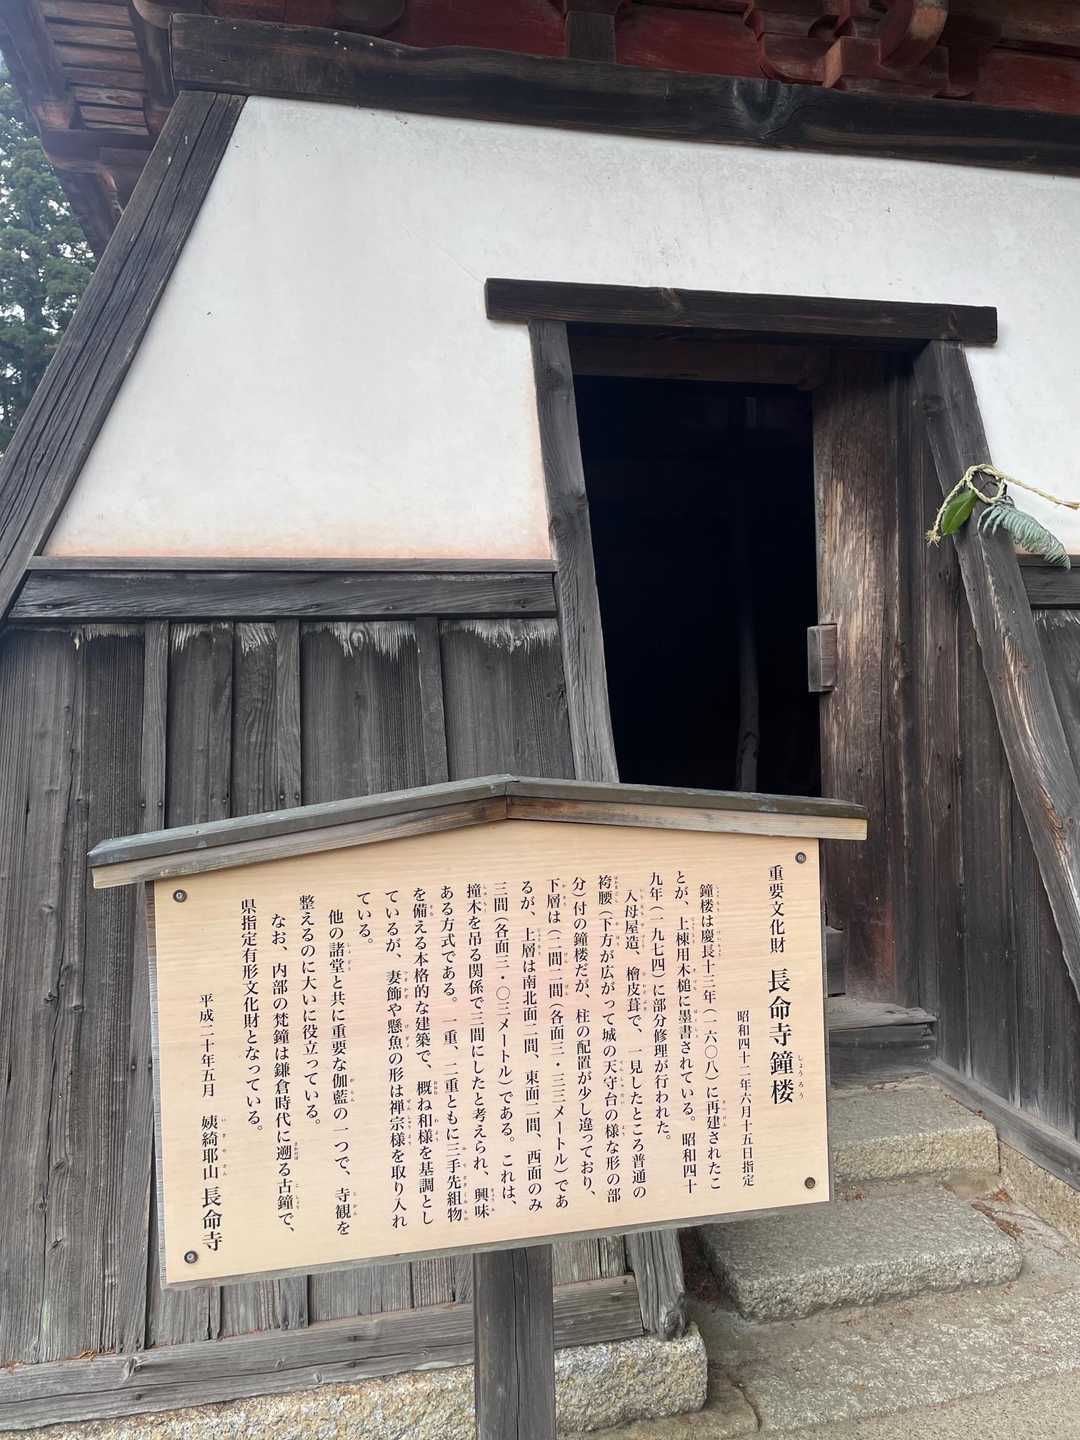 重要文化財 長命寺鐘楼
昭和四十二年六月十五日指定
鐘楼は慶長十三年(一六〇八)に再建されたこ
とが、上棟用木槌に墨書されている。昭和四十
九年(一九七四)に部分修理が行われた。
入母屋造、檜皮葺で、一見したところ普通の
袴腰(下方が広がって城の天守台の様な形の部
分)付の鐘楼だが、柱の配置が少し違っており、
下層は(二間二間(各面三・三三メートル)であ
るが、上層は南北面二間、東面二間、西面のみ
三間(各面三・〇三メートル)である。これは、
撞木を吊る関係で三間にしたと考えられ、興味
ある方式である。一重、二重ともに三手先組物
を備える本格的な建築で、概ね和様を基調とし
ているが、妻飾や懸魚の形は禅宗様を取り入れ
ている。
他の諸堂と共に重要な伽藍の一つで、寺観を
整えるのに大いに役立っている。
なお、内部の梵鐘は鎌倉時代に遡る古鐘で、
県指定有形文化財となっている。
平成二十年五月 姨綺耶山 長命寺